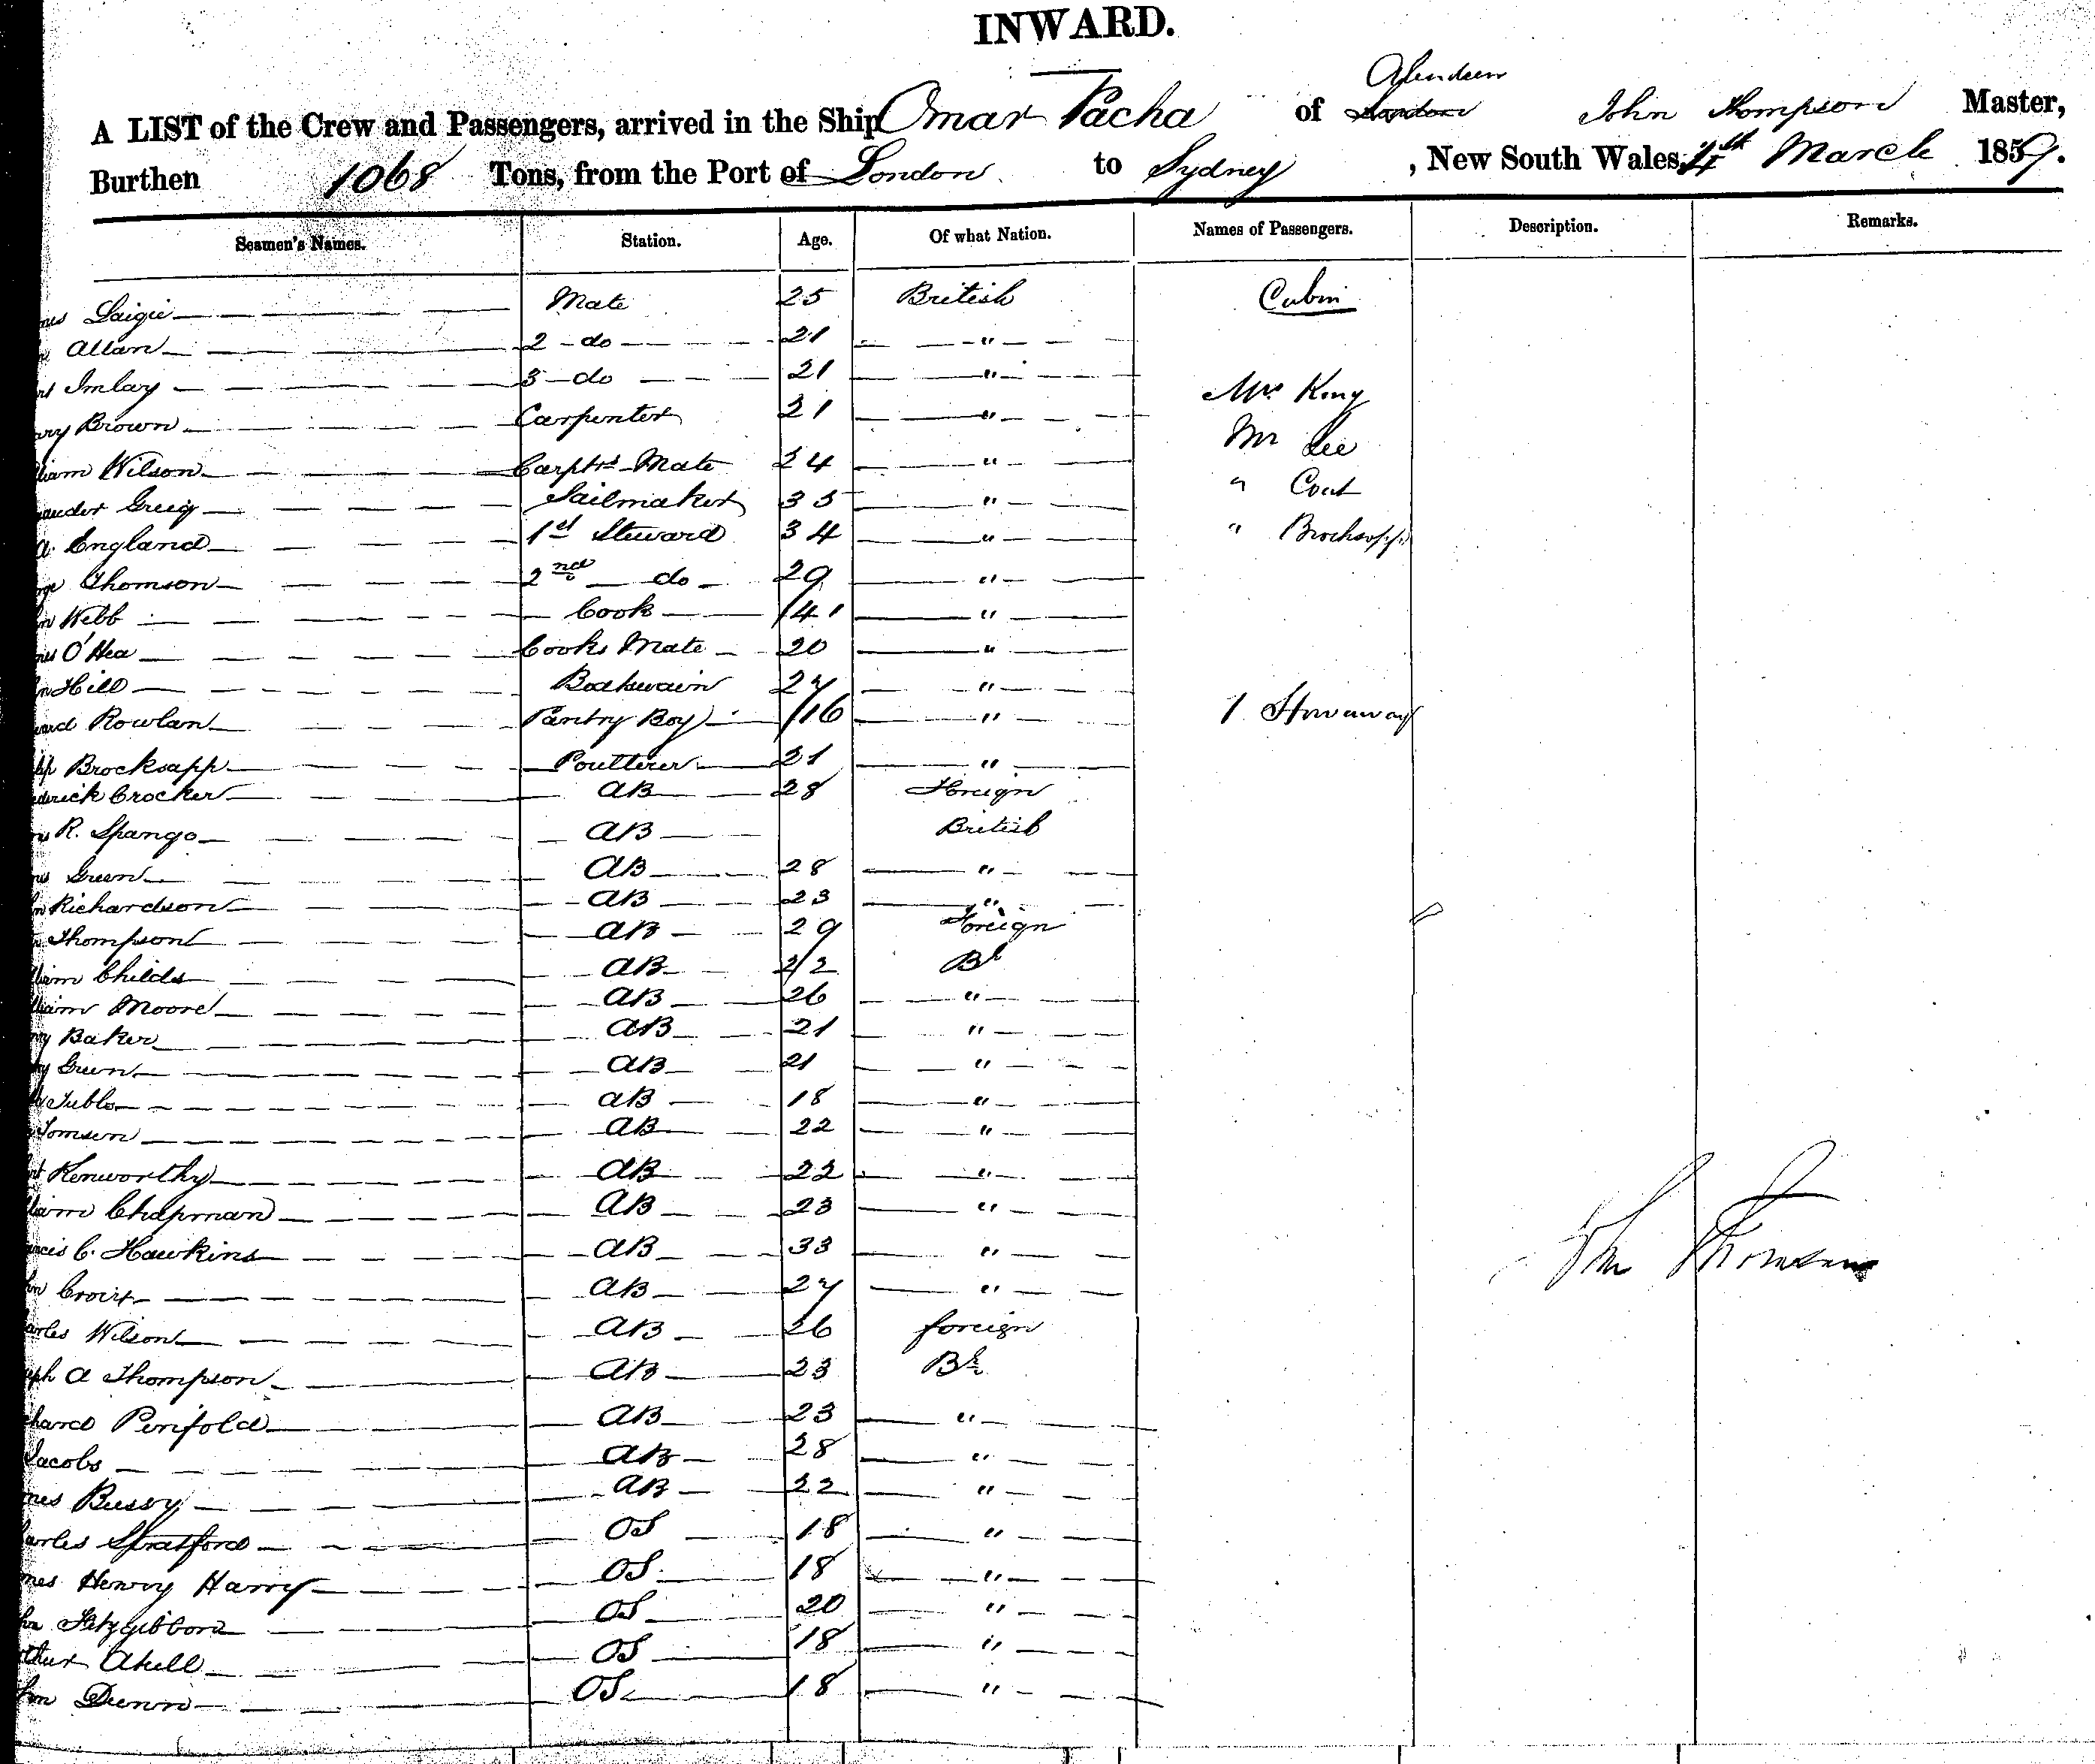 INWARD.
Aberdeen
A LIST of the Crew and Passengers, arrived in the Ship Omar Pacha of London John Thompson Master,
Burthen 1068 Tons, from the Port of London to Sydney, New South Wales, 4th March 1859.
Seamen's Names. Station. Age. Of what Nation. Names of Passengers. Description. Remarks.
Mate 25 British Cabin
Allan 2 do 21 "
Imlay 3 do 21 "
Mrs King
Brown Carpenter 21 "
Mr Lee
Wilson Carptrs Mate 24 "
" Coat
Greig Sailmaker 35 "
England 1st Steward 34 " " Brocksopp
Thomson 2nd do 29 "
Webb Cook 41 "
O'Hea Cooks Mate 20 "
Hill Boatswain 27 "
Rowlan Pantry Boy 16 " 1 Stowaway
Brocksapp Poulterer 21 "
Crocker AB 28 Foreign
R. Spango AB British
Green AB 28 "
Richardson AB 23 "
Thompson AB 29 Foreign
Childs AB 22 Bh
Moore AB 26 "
Baker AB 21 "
Green AB 21 "
AB 18 "
Tomsen AB 22 "
Kenworthy AB 22 "
Chapman AB 23 "
C. Hawkins AB 33 "
John Thomson
AB 27 "
Wilson AB 26 foreign
A Thompson AB 23 Bh
Penfold AB 23 "
Jacobs AB 28 "
Bussy AB 22 "
Stratford OS 18 "
Henry Harry OS 18 "
Fitzgibbon OS 20 "
Akell OS 18 "
Dunn OS 18 "